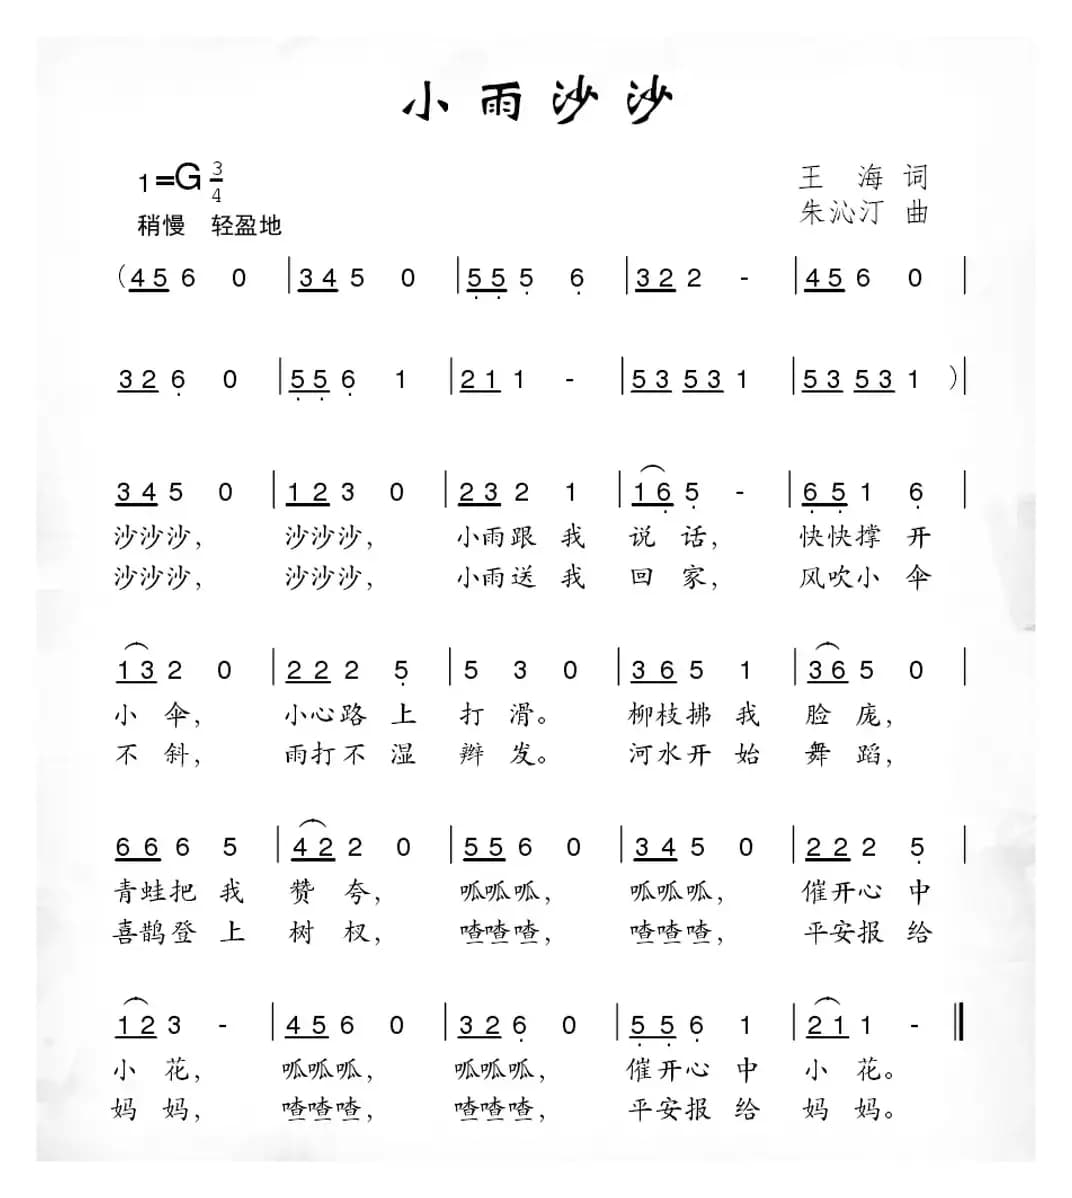 小雨沙沙
1=G 3/4
王 海 词
稍慢 轻盈地
朱沁汀 曲
(4 5 6 0 | 3 4 5 0 | 5̣ 5̣ 5̣ 6̣ | 3 2 2 - | 4 5 6 0 |
3 2 6̣ 0 | 5̣ 5̣ 6̣ 1 | 2 1 1 - | 5 3 5 3 1 | 5 3 5 3 1 )|
3 4 5 0 | 1 2 3 0 | 2 3 2 1 | 1 6̣ 5̣ - | 6̣ 5̣ 1 6̣ |
沙沙沙, 沙沙沙, 小雨跟 我 说 话, 快快撑 开
沙沙沙, 沙沙沙, 小雨送 我 回 家, 风吹小 伞
1 3 2 0 | 2 2 2 5̣ | 5 3 0 | 3 6 5 1 | 3 6 5 0 |
小 伞, 小心路 上 打 滑。 柳枝拂 我 脸 庞,
不 斜, 雨打不 湿 辫 发。 河水开 始 舞 蹈,
6 6 6 5 | 4 2 2 0 | 5 5 6 0 | 3 4 5 0 | 2 2 2 5̣ |
青蛙把 我 赞 夸, 呱呱呱, 呱呱呱, 催开心 中
喜鹊登 上 树 杈, 喳喳喳, 喳喳喳, 平安报 给
1 2 3 - | 4 5 6 0 | 3 2 6̣ 0 | 5̣ 5̣ 6̣ 1 | 2 1 1 - ‖
小 花, 呱呱呱, 呱呱呱, 催开心 中 小 花。
妈 妈, 喳喳喳, 喳喳喳, 平安报 给 妈 妈。